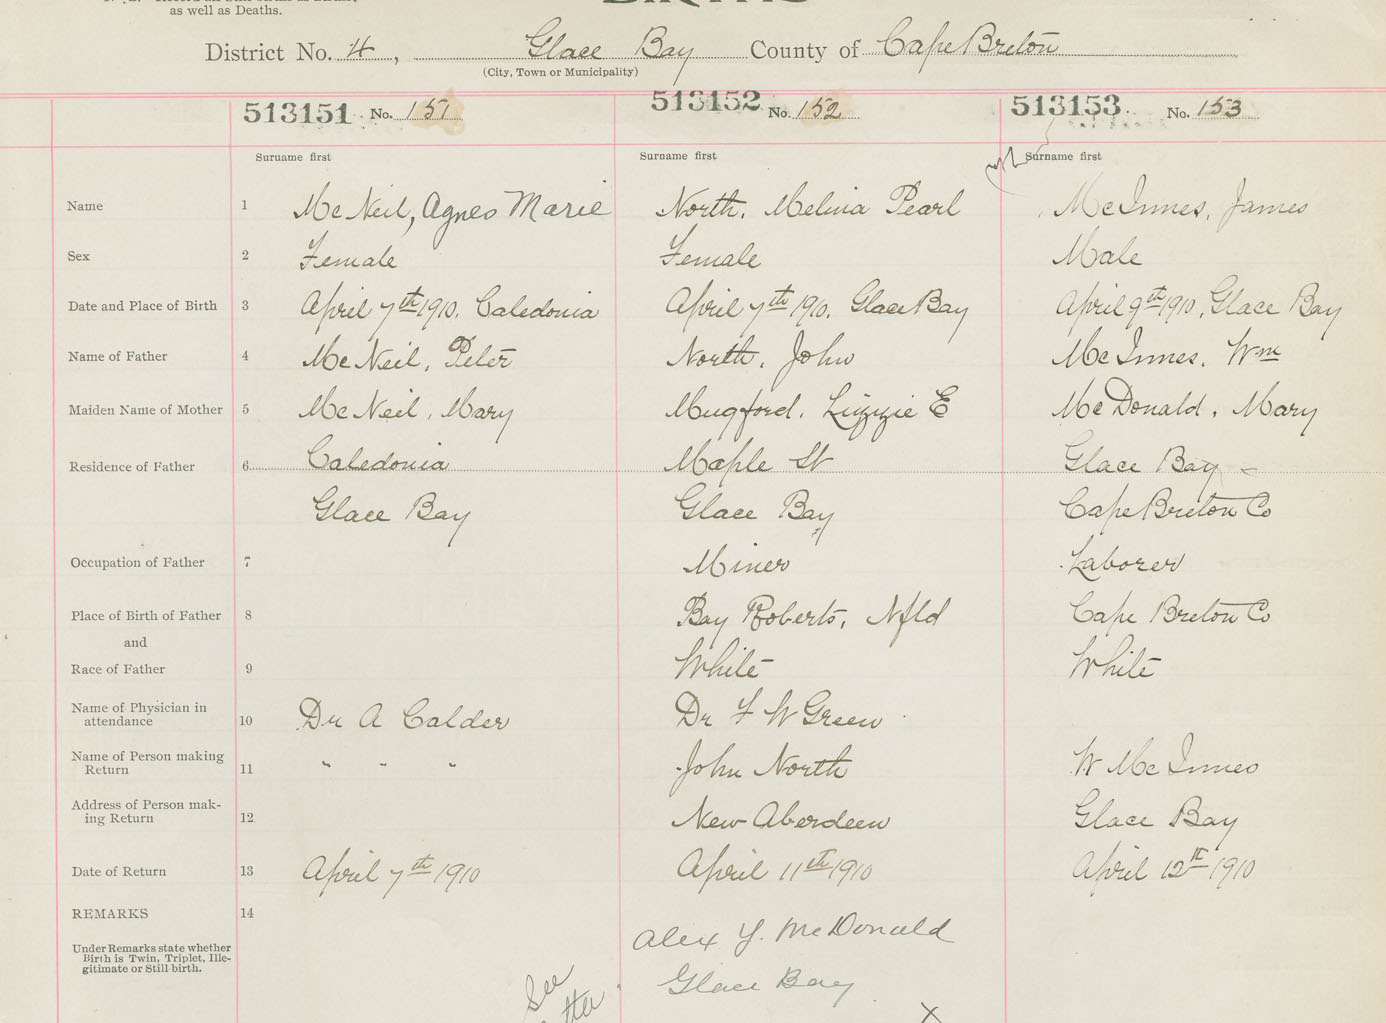 as well as Deaths.
BIRTHS
District No. 4, Glace Bay County of Cape Breton
(City, Town or Municipality)
513151 No. 151 513152 No. 152 513153 No. 153
Surname first Surname first Surname first
Name 1 McNeil, Agnes Marie North, Melina Pearl McInnes, James
Sex 2 Female Female Male
Date and Place of Birth 3 April 7th 1910. Caledonia April 7th 1910. Glace Bay April 9th 1910, Glace Bay
Name of Father 4 McNeil, Peter North, John McInnes, Wm
Maiden Name of Mother 5 McNeil, Mary Mugford, Lizzie E McDonald, Mary
Residence of Father 6 Caledonia Maple St Glace Bay
Glace Bay Glace Bay Cape Breton Co
Occupation of Father 7 Miner Laborer
Place of Birth of Father 8 Bay Roberts, Nfld Cape Breton Co
and
Race of Father 9 White White
Name of Physician in
attendance 10 Dr A Calder Dr F W Green
Name of Person making
Return 11 " " " John North W McInnes
Address of Person mak-
ing Return 12 New Aberdeen Glace Bay
Date of Return 13 April 7th 1910 April 11th 1910 April 12th 1910
REMARKS 14
Under Remarks state whether
Birth is Twin, Triplet, Ille-
gitimate or Still-birth.
Alex Y. McDonald
Glace Bay
See
X